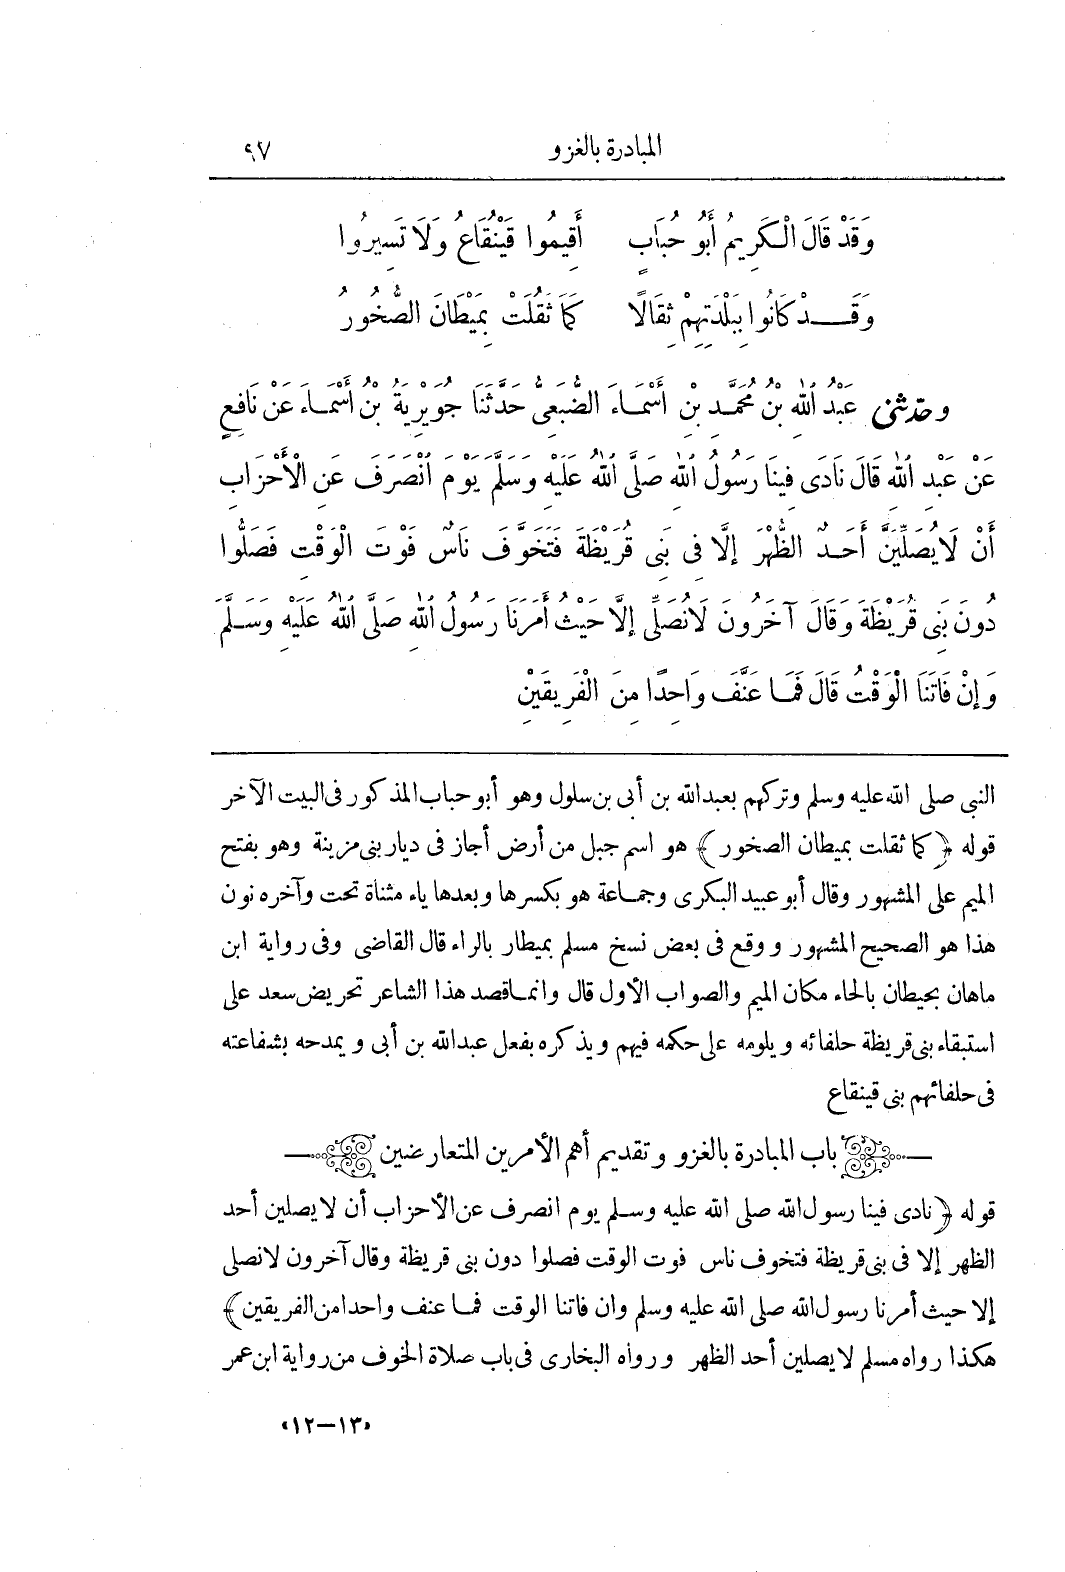 المبادرة بالغزو ٩٧
وَقَدْ قَالَ الْكَرِيمُ أَبُو حُبَابٍ أَقِيمُوا قَيْنُقَاعُ وَلَا تَسِيرُوا
وَقَدْ كَانُوا بِبَلْدَتِهِمْ ثِقَالًا كَمَا ثَقُلَتْ بِمَيْطَانَ الصُّخُورُ
وحدثني عَبْدُ اللهِ بْنُ مُحَمَّدِ بْنِ أَسْمَاءَ الضُّبَعِيُّ حَدَّثَنَا جُوَيْرِيَةُ بْنُ أَسْمَاءَ عَنْ نَافِعٍ
عَنْ عَبْدِ اللهِ قَالَ نَادَى فِينَا رَسُولُ اللهِ صَلَّى اللهُ عَلَيْهِ وَسَلَّمَ يَوْمَ انْصَرَفَ عَنِ الْأَحْزَابِ
أَنْ لَا يُصَلِّيَنَّ أَحَدٌ الظُّهْرَ إِلَّا فِي بَنِي قُرَيْظَةَ فَتَخَوَّفَ نَاسٌ فَوْتَ الْوَقْتِ فَصَلُّوا
دُونَ بَنِي قُرَيْظَةَ وَقَالَ آخَرُونَ لَا نُصَلِّي إِلَّا حَيْثُ أَمَرَنَا رَسُولُ اللهِ صَلَّى اللهُ عَلَيْهِ وَسَلَّمَ
وَإِنْ فَاتَنَا الْوَقْتُ قَالَ فَمَا عَنَّفَ وَاحِدًا مِنَ الْفَرِيقَيْنِ
النبي صلى الله عليه وسلم وتركهم بعبد الله بن أبى بن سلول وهو أبو حباب المذكور فى البيت الآخر
قوله ﴿كما ثقلت بميطان الصخور﴾ هو اسم جبل من أرض أجاز فى ديار بنى مزينة وهو بفتح
الميم على المشهور وقال أبو عبيد البكرى وجماعة هو بكسرها وبعدها ياء مثناة تحت وآخره نون
هذا هو الصحيح المشهور ووقع فى بعض نسخ مسلم بميطار بالراء قال القاضى وفى رواية ابن
ماهان بحيطان بالحاء مكان الميم والصواب الأول قال وانما قصد هذا الشاعر تحريض سعد على
استبقاء بنى قريظة حلفائه ويلومه على حكمه فيهم ويذكره بفعل عبد الله بن أبى ويمدحه بشفاعته
فى حلفائهم بنى قينقاع
باب المبادرة بالغزو وتقديم أهم الأمرين المتعارضين
قوله ﴿نادى فينا رسول الله صلى الله عليه وسلم يوم انصرف عن الأحزاب أن لا يصلين أحد
الظهر إلا فى بنى قريظة فتخوف ناس فوت الوقت فصلوا دون بنى قريظة وقال آخرون لا نصلى
إلا حيث أمرنا رسول الله صلى الله عليه وسلم وان فاتنا الوقت فما عنف واحدا من الفريقين﴾
هكذا رواه مسلم لا يصلين أحد الظهر ورواه البخارى فى باب صلاة الخوف من رواية ابن عمر
«١٣–١٢»